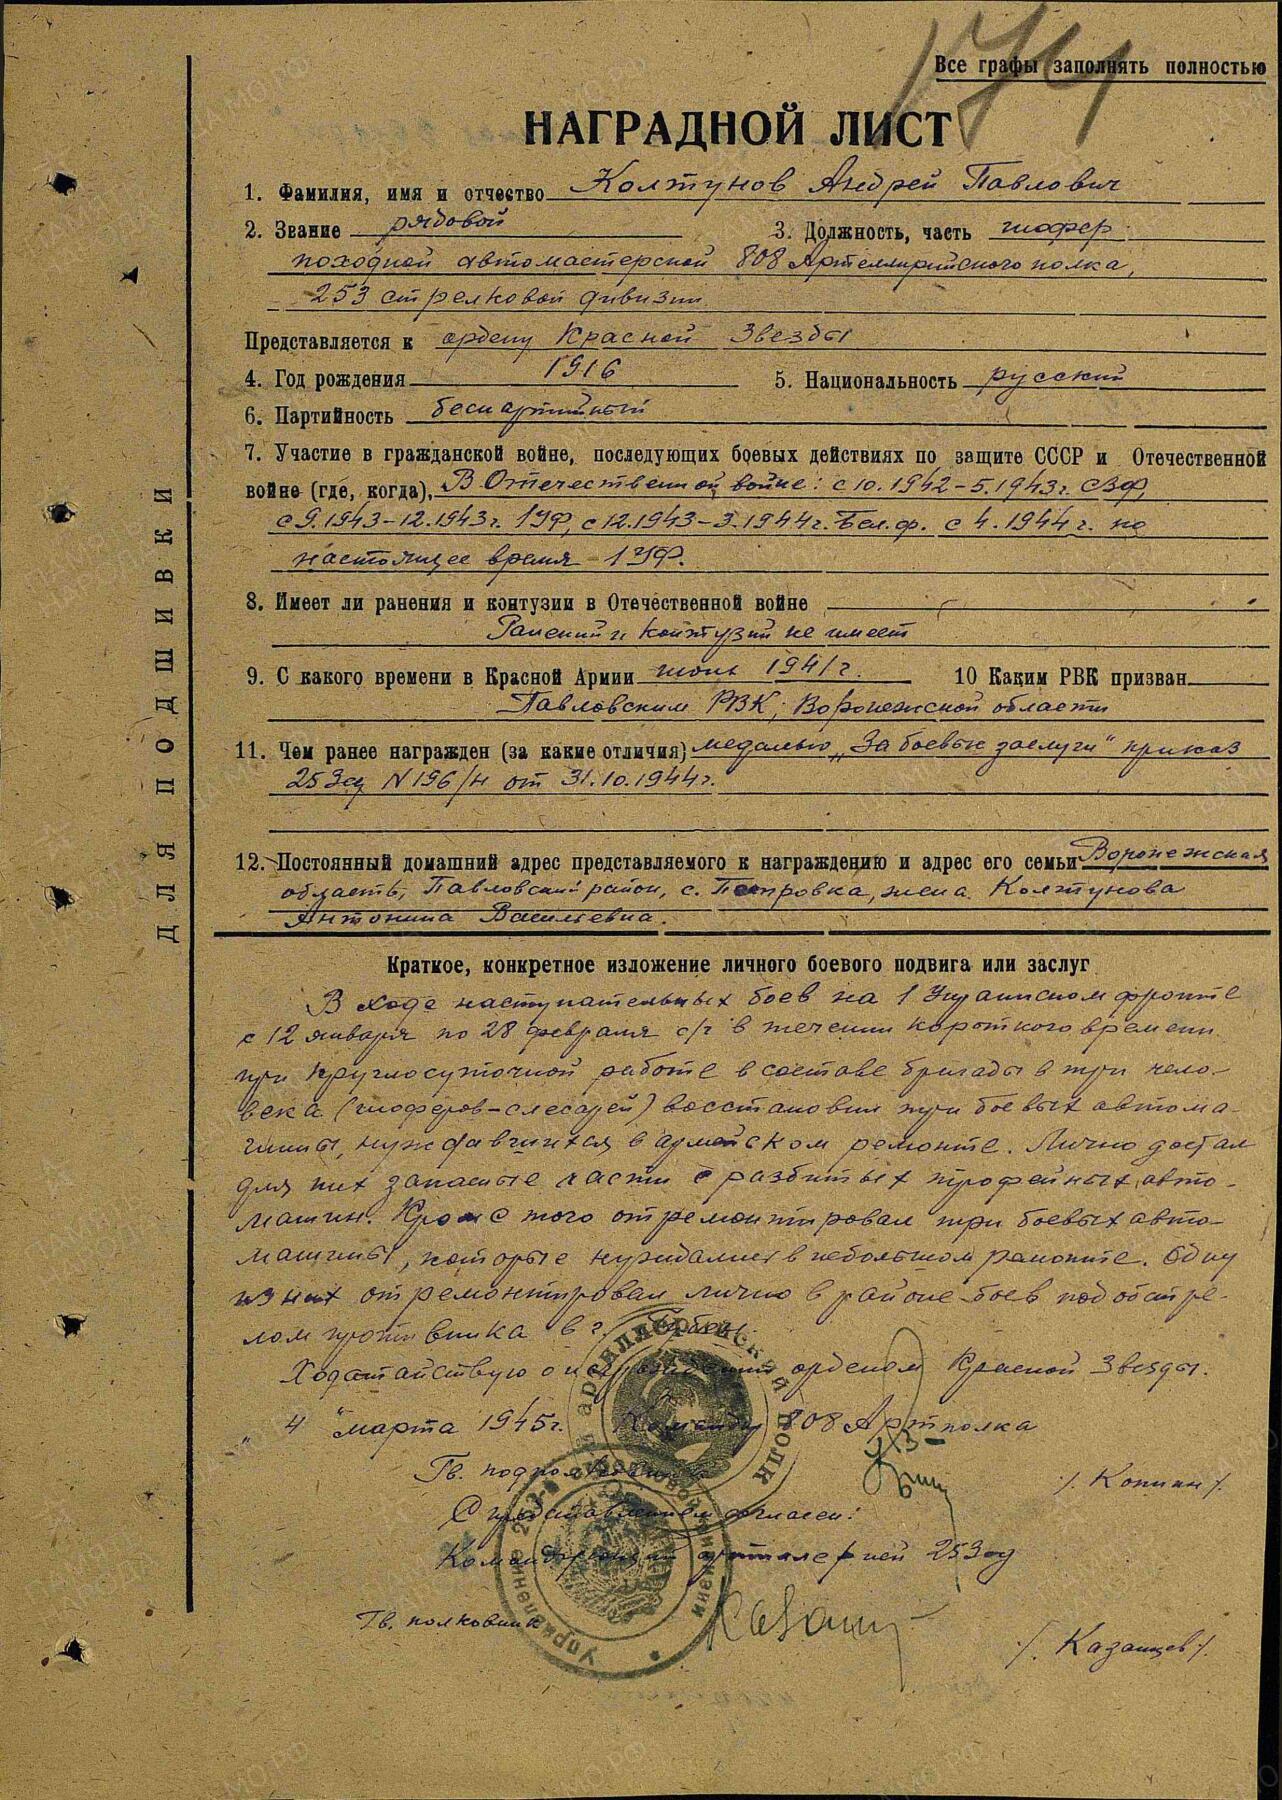 Все графы заполнять полностью
174
НАГРАДНОЙ ЛИСТ
1. Фамилия, имя и отчество Колтунов Андрей Павлович
2. Звание рядовой 3. Должность, часть шофер
походной автомастерской 808 Артиллерийского полка,
253 стрелковой дивизии
Представляется к ордену Красной Звезды
4. Год рождения 1916 5. Национальность русский
6. Партийность беспартийный
7. Участие в гражданской войне, последующих боевых действиях по защите СССР и Отечественной
войне (где, когда), В Отечественной войне: с 10.1942-5.1943г. СЗФ,
с 9.1943-12.1943г. 1УФ, с 12.1943-3.1944г. Бел.ф. с 4.1944г. по
настоящее время - 1УФ.
8. Имеет ли ранения и контузии в Отечественной войне
Ранений и контузий не имеет
9. С какого времени в Красной Армии июнь 1941г. 10 Каким РВК призван
Павловским РВК, Воронежской области
11. Чем ранее награжден (за какие отличия) медалью „За боевые заслуги" приказ
253сд N196/н от 31.10.1944г.
12. Постоянный домашний адрес представляемого к награждению и адрес его семьи Воронежская
область, Павловский район, с. Петровка, жена Колтунова
Антонина Васильевна.
ДЛЯ ПОДШИВКИ
Краткое, конкретное изложение личного боевого подвига или заслуг
В ходе наступательных боев на 1 Украинском фронте
с 12 января по 28 февраля с/г в течении короткого времени
при круглосуточной работе в составе бригады в три чело-
века (шоферов-слесарей) восстановил три боевых автома-
шины, нуждавшихся в армейском ремонте. Лично достал
для них запасные части с разбитых трофейных авто-
машин. Кроме того отремонтировал три боевых авто-
машины, которые нуждались в небольшом ремонте. Одну
из них отремонтировал лично в районе боев под обстре-
лом противника в г. Губен.
Ходатайствую о награждении орденом Красной Звезды.
"4" марта 1945г. Командир 808 Артполка
Гв. подполковник /. Копман /.
С представлением согласен:
Командующий артиллерией 253сд
Гв. полковник /. Казанцев /.
артиллерийский полк
Управление 253-й стрелковой дивизии